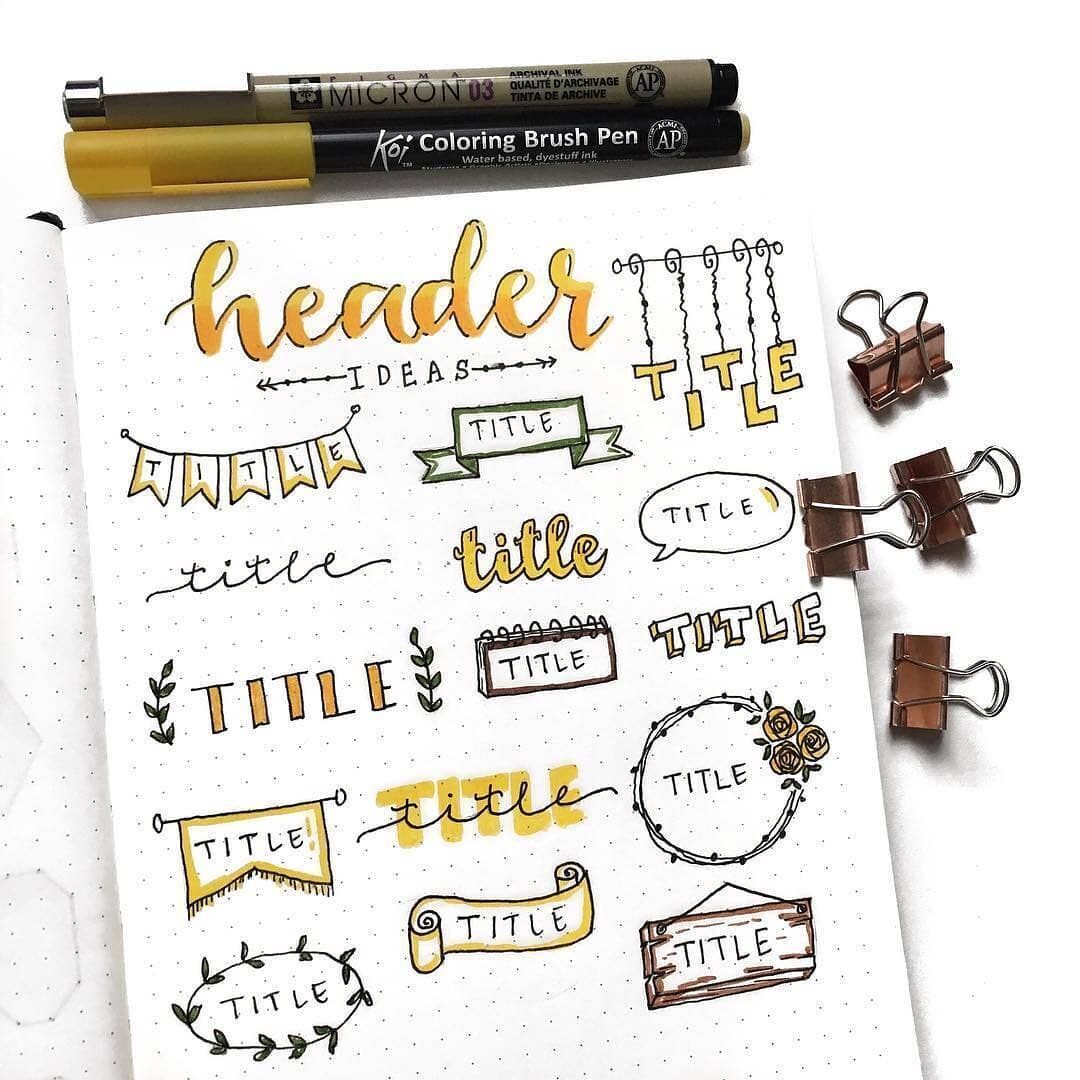 PIGMA
MICRON 03
ARCHIVAL INK
QUALITÉ D'ARCHIVAGE
TINTA DE ARCHIVE
ACMI
AP
Koi Coloring Brush Pen
TM
Water based, dyestuff ink
ACMI
AP
header
IDEAS
TITLE
TITLE
TITLE
TITLE
title
title
TITLE
TITLE
TITLE
TITLE!
TITLE
title
TITLE
TITLE
TITLE
TITLE